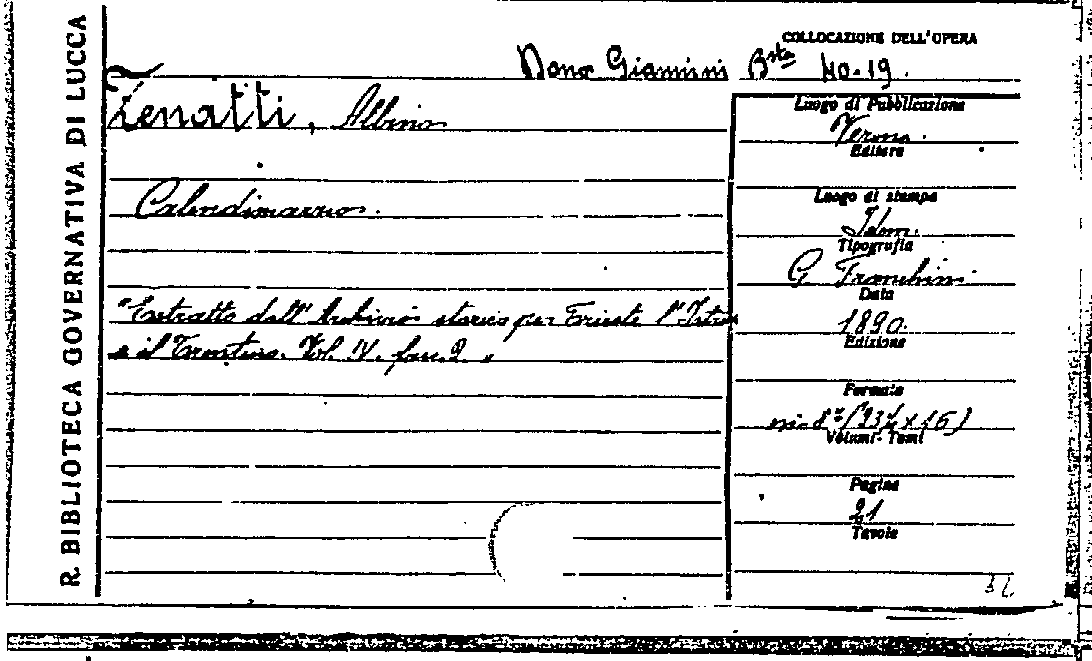 R. BIBLIOTECA GOVERNATIVA DI LUCCA
COLLOCAZIONE DELL'OPERA
Dono Giannini Bsta 40.19.
Zenatti, Albino
Calendimarzo.
"Estratto dall'Archivio storico per Trieste l'Istria
e il Trentino. Vol. IV. fasc. 2. "
Luogo di Pubblicazione
Verona.
Editore
Luogo di stampa
Idem.
Tipografia
G. Franchini
Data
1890.
Edizione
Formato
in-8º (23½ x 16)
Volumi - Tomi
Pagine
21
Tavole